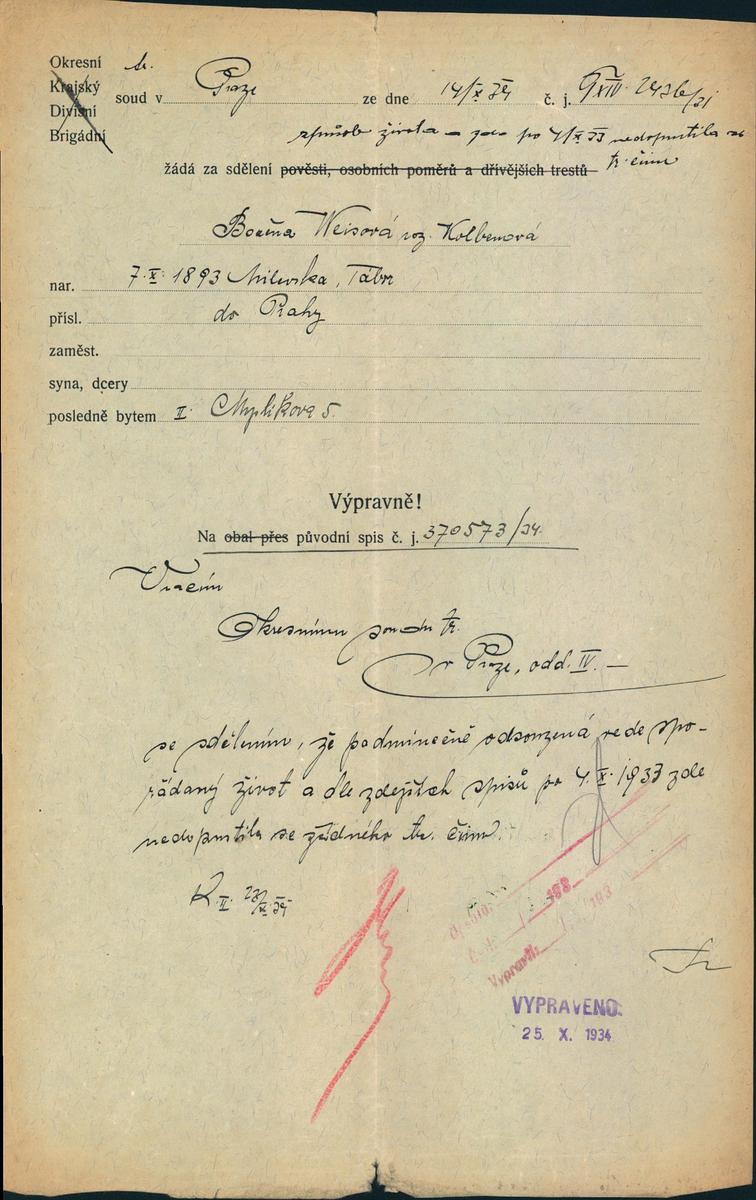 Okresní tr.
Krajský
Divisní
Brigádní
soud v Praze ze dne 14/X 34 č. j.
způsob života – zda po 4/X 33 nedopustila se
žádá za sdělení pověsti, osobních poměrů a dřívějších trestů tr. činu
Božena Weisová roz. Kolbenová
nar. 7.X. 1893 Milevska, Tábor
přísl. do Prahy
zaměst.
syna, dcery
posledně bytem II. Myslikova 5.
Výpravně!
Na obal přes původní spis č. j. 370573/34.
Vracím
Okresnímu soudu tr.
v Praze, odd. IV. –
se sdělením, že podmínečně odsouzená vede spo-
řádaný život a dle zdejších spisů po 4.X.1933 zde
nedopustila se žádného tr. činu.
Vypravil:
VYPRAVENO.
25. X. 1934